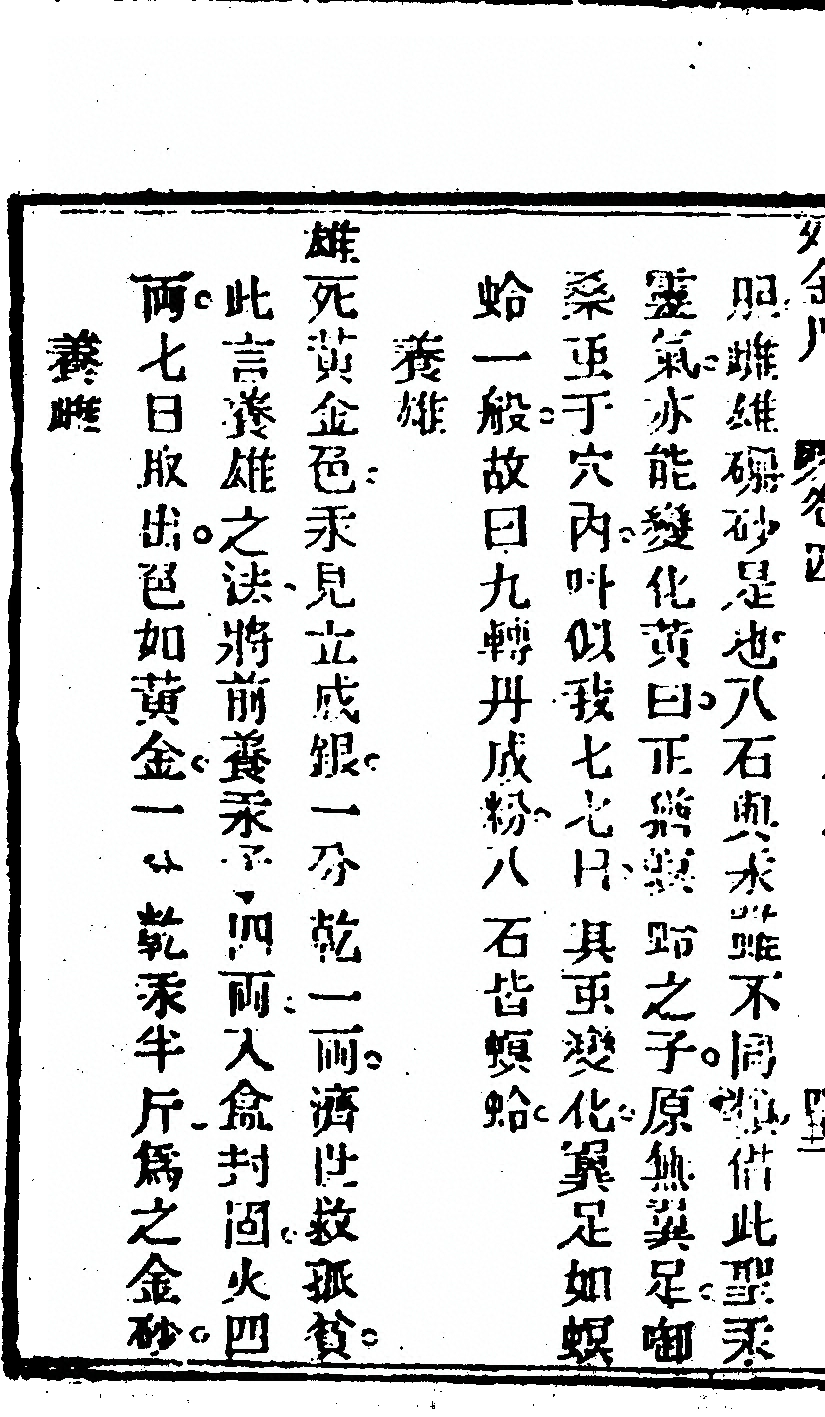 卷四
胆雌雄硼砂是也八石與汞雖不同類借此聖汞
靈氣亦能變化黃曰正猶螟蛉之子原無翼足啣
桑虫于穴内叫似我七七日其虫變化翼足如螟
蛤一般故曰九轉丹成粉八石皆螟蛤
養雄
雄死黃金色汞見立成銀一分乾一兩濟世救孤貧
此言養雄之法將前養汞四兩入盒封固火四
兩七日取出色如黃金一分乾汞半斤爲之金砂
養雌